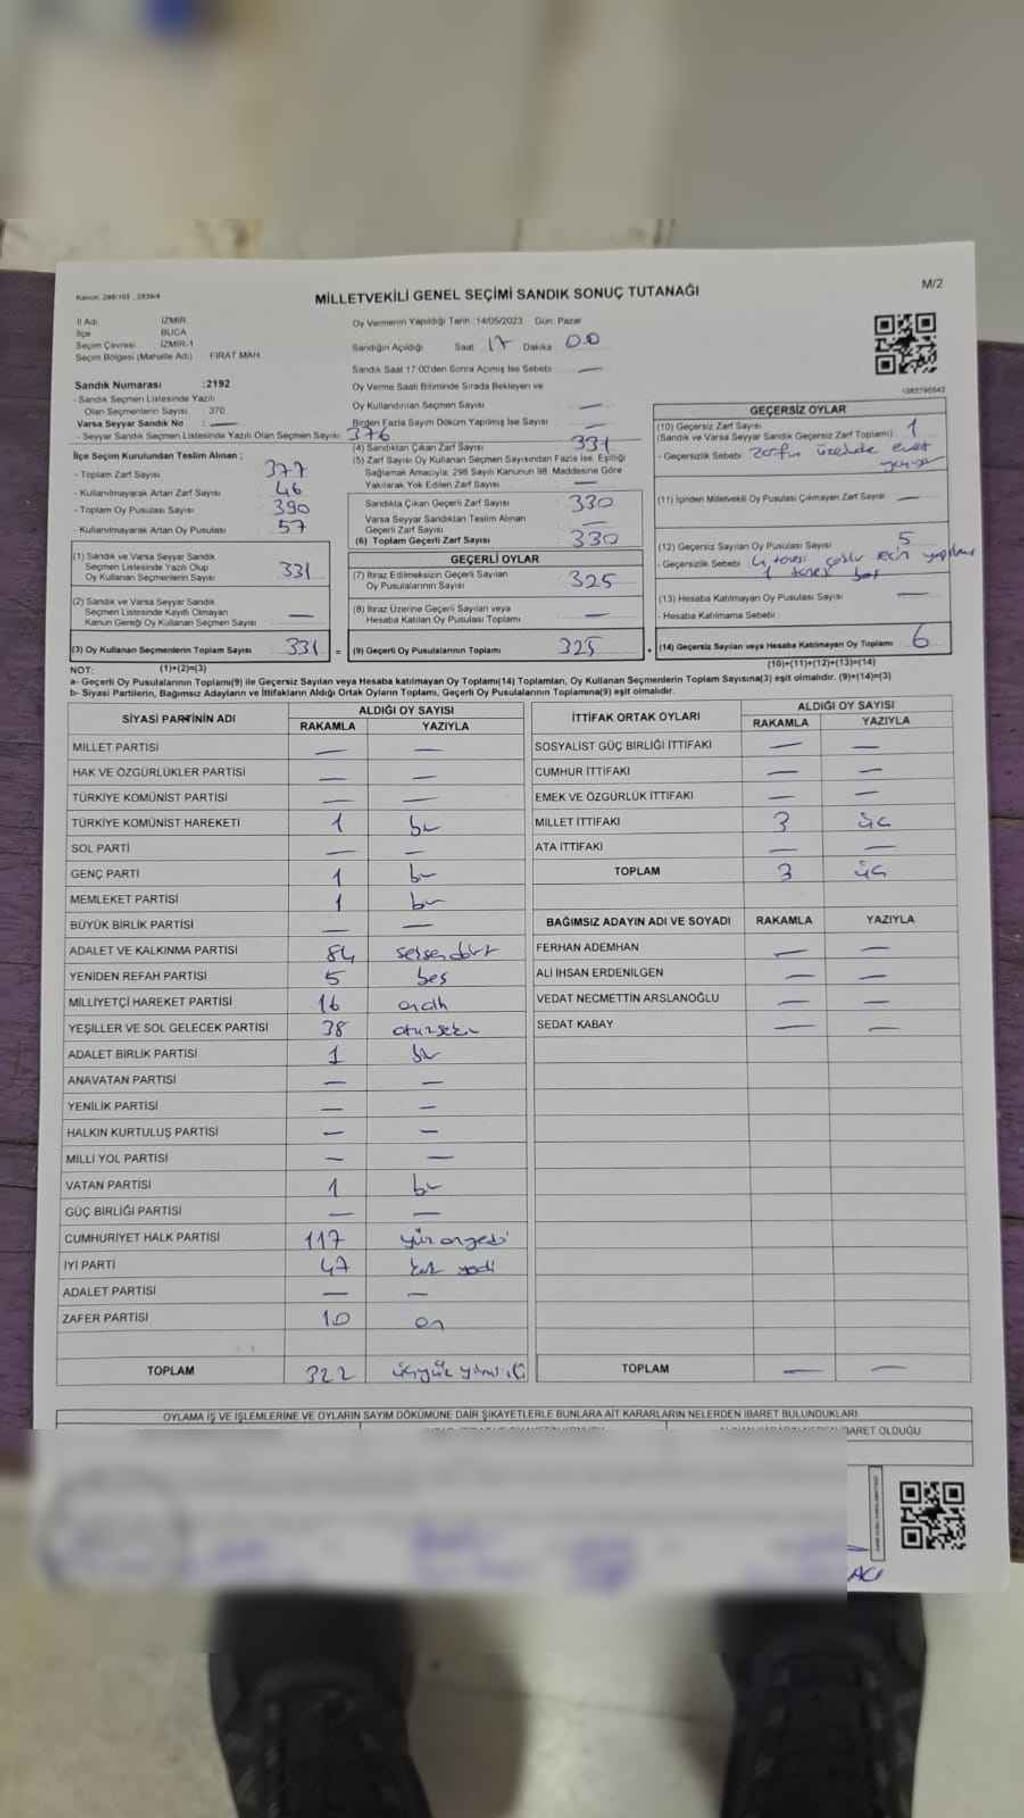 Kanun: 298/105 , 2839/4
MİLLETVEKİLİ GENEL SEÇİMİ SANDIK SONUÇ TUTANAĞI
M/2
İl Adı : İZMİR
İlçe : BUCA
Seçim Çevresi : İZMİR-1
Seçim Bölgesi (Mahalle Adı) : FIRAT MAH.
Sandık Numarası :2192
- Sandık Seçmen Listesinde Yazılı
Olan Seçmenlerin Sayısı : 370
Varsa Seyyar Sandık No : —
- Seyyar Sandık Seçmen Listesinde Yazılı Olan Seçmen Sayısı: 376
İlçe Seçim Kurulundan Teslim Alınan ;
- Toplam Zarf Sayısı 377
- Kullanılmayarak Artan Zarf Sayısı 46
- Toplam Oy Pusulası Sayısı 390
- Kullanılmayarak Artan Oy Pusulası 57
(1) Sandık ve Varsa Seyyar Sandık
Seçmen Listesinde Yazılı Olup
Oy Kullanan Seçmenlerin Sayısı 331
(2) Sandık ve Varsa Seyyar Sandık
Seçmen Listesinde Kayıtlı Olmayan
Kanun Gereği Oy Kullanan Seçmen Sayısı —
(3) Oy Kullanan Seçmenlerin Toplam Sayısı 331 =
Oy Vermenin Yapıldığı Tarih :14/05/2023 Gün: Pazar
Sandığın Açıldığı Saat 17 Dakika 00
Sandık Saat 17:00'den Sonra Açılmış İse Sebebi —
Oy Verme Saati Bitiminde Sırada Bekleyen ve
Oy Kullandırılan Seçmen Sayısı —
Birden Fazla Sayım Döküm Yapılmış İse Sayısı —
(4) Sandıktan Çıkan Zarf Sayısı 331
(5) Zarf Sayısı Oy Kullanan Seçmen Sayısından Fazla İse, Eşitliği
Sağlamak Amacıyla; 298 Sayılı Kanunun 98. Maddesine Göre
Yakılarak Yok Edilen Zarf Sayısı —
Sandıkta Çıkan Geçerli Zarf Sayısı 330
Varsa Seyyar Sandıktan Teslim Alınan
Geçerli Zarf Sayısı —
(6) Toplam Geçerli Zarf Sayısı 330
GEÇERLİ OYLAR
(7) İtiraz Edilmeksizin Geçerli Sayılan
Oy Pusulalarının Sayısı 325
(8) İtiraz Üzerine Geçerli Sayılan veya
Hesaba Katılan Oy Pusulası Toplamı —
(9) Geçerli Oy Pusulalarının Toplamı 325 +
GEÇERSİZ OYLAR
(10) Geçersiz Zarf Sayısı
(Sandık ve Varsa Seyyar Sandık Geçersiz Zarf Toplamı) 1
- Geçersizlik Sebebi: Zarfın üzerinde evet
(11) İçinden Milletvekili Oy Pusulası Çıkmayan Zarf Sayısı —
(12) Geçersiz Sayılan Oy Pusulası Sayısı 5
- Geçersizlik Sebebi: 4 tanesi
1 tanesi boş
(13) Hesaba Katılmayan Oy Pusulası Sayısı —
- Hesaba Katılmama Sebebi :
(14) Geçersiz Sayılan veya Hesaba Katılmayan Oy Toplamı 6
NOT: (1)+(2)=(3)
(10)+(11)+(12)+(13)=(14)
a- Geçerli Oy Pusulalarının Toplamı(9) ile Geçersiz Sayılan veya Hesaba katılmayan Oy Toplamı(14) Toplamları, Oy Kullanan Seçmenlerin Toplam Sayısına(3) eşit olmalıdır. (9)+(14)=(3)
b- Siyasi Partilerin, Bağımsız Adayların ve İttifakların Aldığı Ortak Oyların Toplamı, Geçerli Oy Pusulalarının Toplamına(9) eşit olmalıdır.
SİYASİ PARTİNİN ADI ALDIĞI OY SAYISI
RAKAMLA YAZIYLA
MİLLET PARTİSİ — —
HAK VE ÖZGÜRLÜKLER PARTİSİ — —
TÜRKİYE KOMÜNİST PARTİSİ — —
TÜRKİYE KOMÜNİST HAREKETİ 1 bir
SOL PARTİ — —
GENÇ PARTİ 1 bir
MEMLEKET PARTİSİ 1 bir
BÜYÜK BİRLİK PARTİSİ — —
ADALET VE KALKINMA PARTİSİ 84 seksendört
YENİDEN REFAH PARTİSİ 5 beş
MİLLİYETÇİ HAREKET PARTİSİ 16 onaltı
YEŞİLLER VE SOL GELECEK PARTİSİ 38 otuzsekiz
ADALET BİRLİK PARTİSİ 1 bir
ANAVATAN PARTİSİ — —
YENİLİK PARTİSİ — —
HALKIN KURTULUŞ PARTİSİ — —
MİLLİ YOL PARTİSİ — —
VATAN PARTİSİ 1 bir
GÜÇ BİRLİĞİ PARTİSİ — —
CUMHURİYET HALK PARTİSİ 117 yüzonyedi
İYİ PARTİ 47 kırk yedi
ADALET PARTİSİ — —
ZAFER PARTİSİ 10 on
TOPLAM 322 üçyüz yirmi iki
İTTİFAK ORTAK OYLARI ALDIĞI OY SAYISI
RAKAMLA YAZIYLA
SOSYALİST GÜÇ BİRLİĞİ İTTİFAKI — —
CUMHUR İTTİFAKI — —
EMEK VE ÖZGÜRLÜK İTTİFAKI — —
MİLLET İTTİFAKI 3 üç
ATA İTTİFAKI — —
TOPLAM 3 üç
BAĞIMSIZ ADAYIN ADI VE SOYADI RAKAMLA YAZIYLA
FERHAN ADEMHAN — —
ALİ İHSAN ERDENİLGEN — —
VEDAT NECMETTİN ARSLANOĞLU — —
SEDAT KABAY — —
TOPLAM — —
OYLAMA İŞ VE İŞLEMLERİNE VE OYLARIN SAYIM DÖKÜMÜNE DAİR ŞİKAYETLERLE BUNLARA AİT KARARLARIN NELERDEN İBARET BULUNDUKLARI
İBARET OLDUĞU